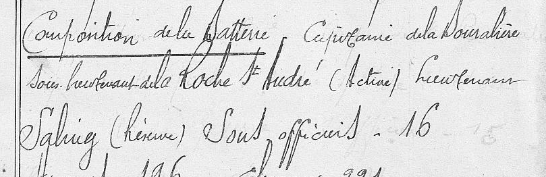 Composition de la Batterie. Capitaine de la Douralière
sous-lieutenant de la Roche St André (Active) Lieutenant
(Réserve) Sous officiers - 16
196 221